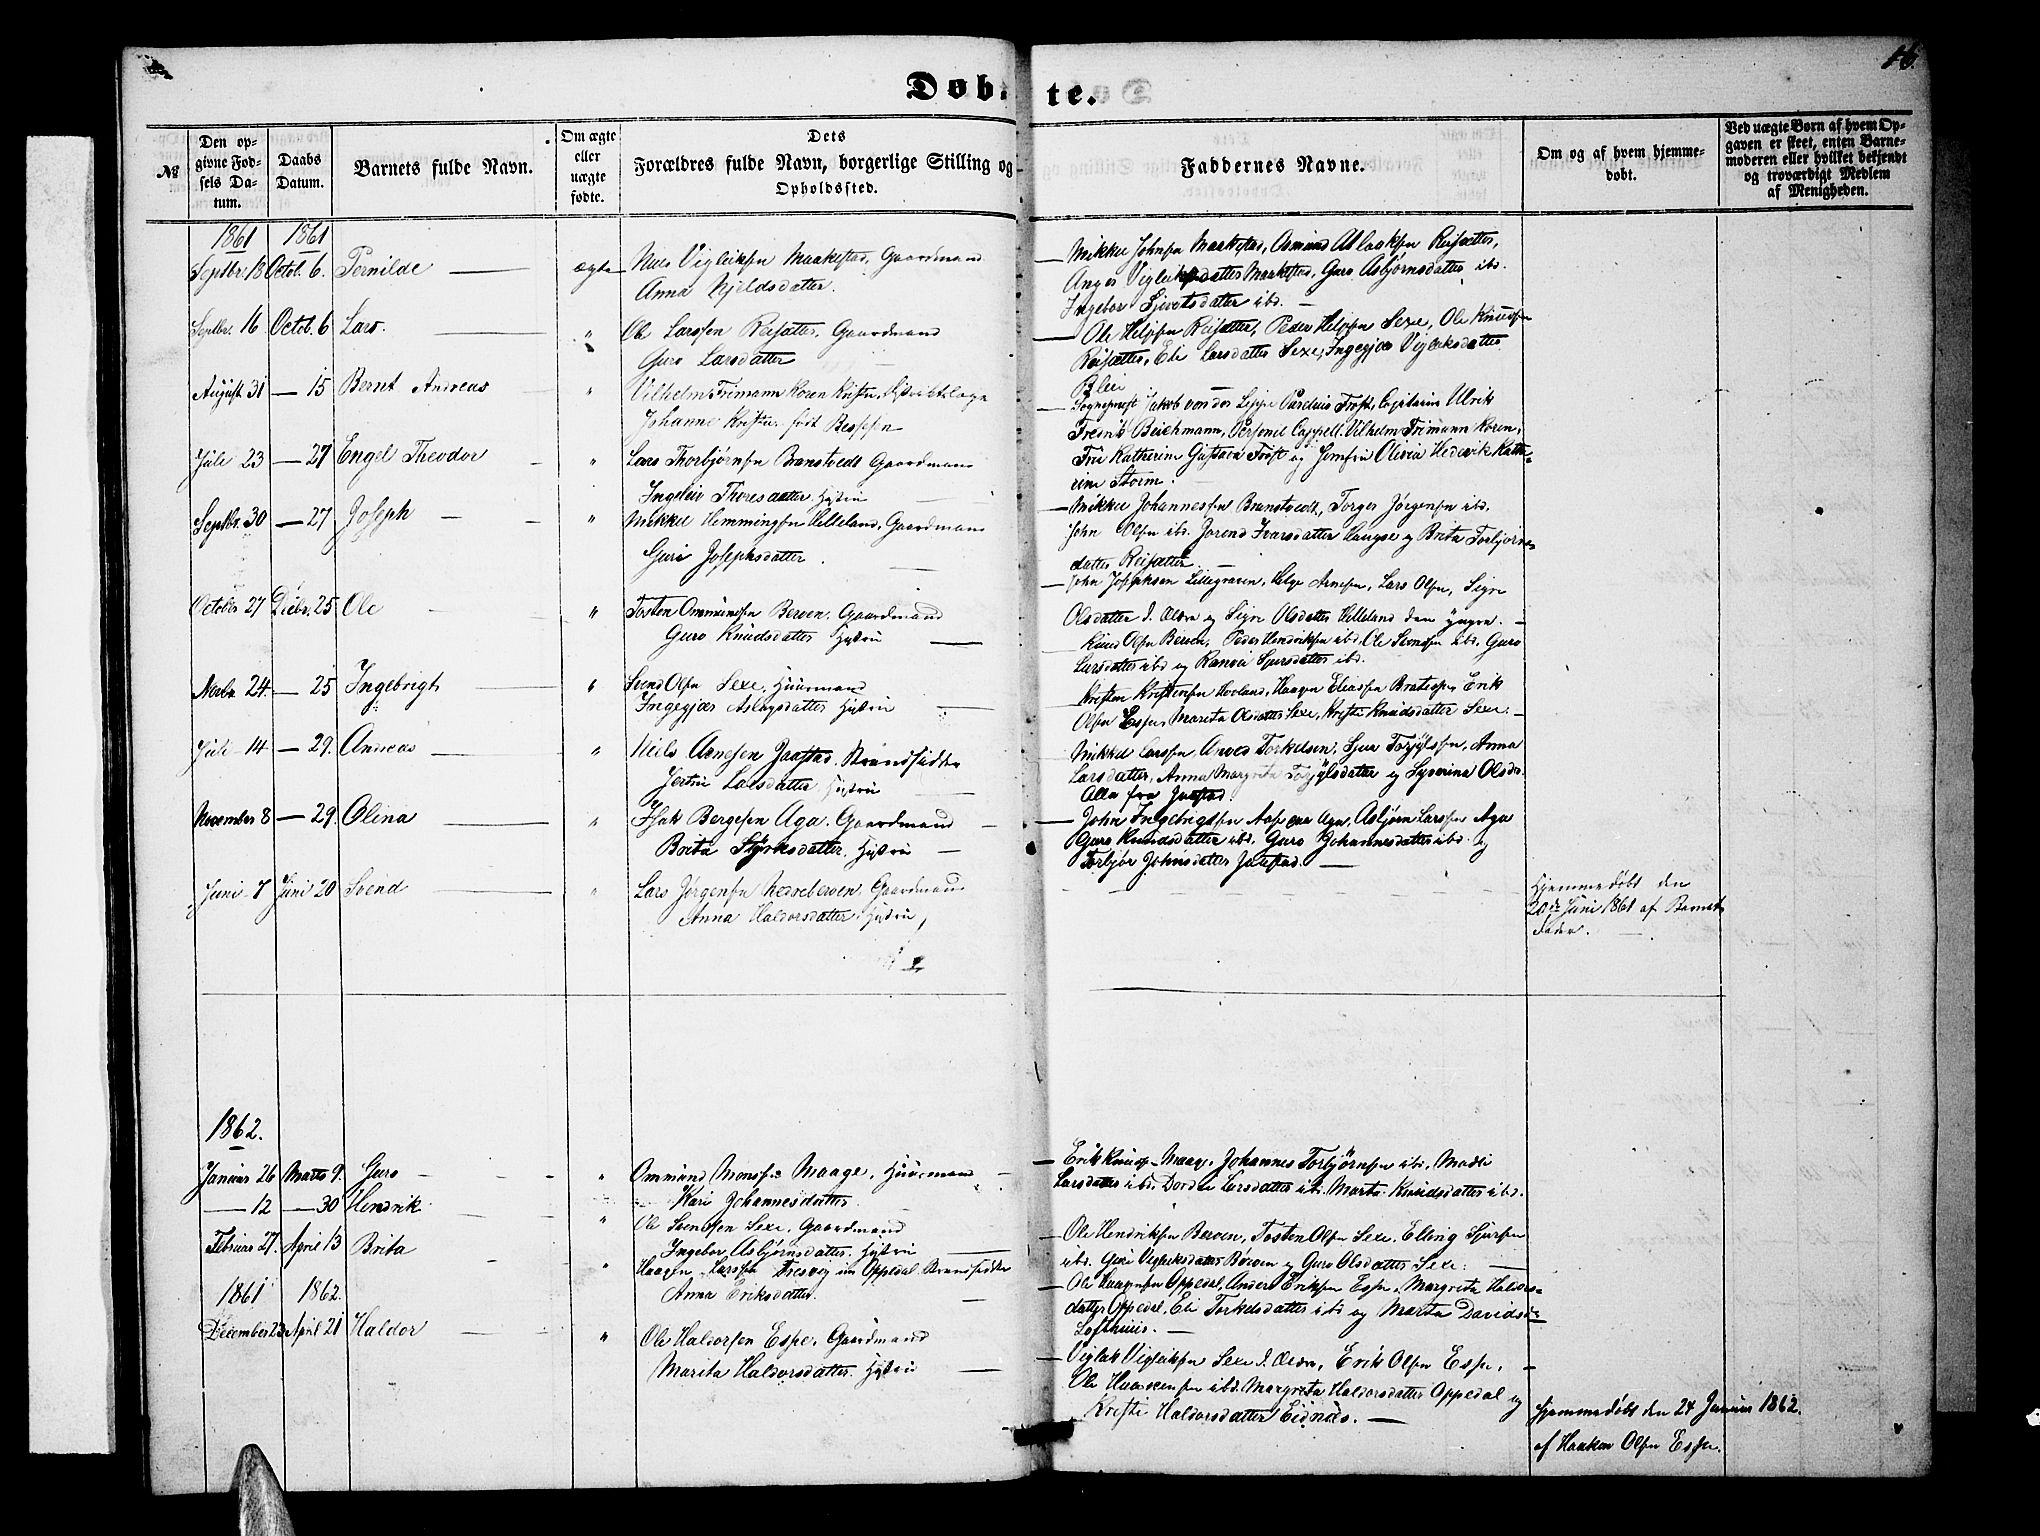 16.
Døbte.
№
Den op-
givne Fød-
sels Da-
tum.
Daabs
Datum.
Barnets fulde Navn.
Om ægte
eller
uægte
fødte.
Dets
Forældres fulde Navn, borgerlige Stilling og
Opholdssted.
Faddernes Navne.
Om og af hvem hjemme-
døbt.
Ved uægte Børn af hvem Op-
gaven er skeet, enten Barne-
moderen eller hvilket bekjendt
og troværdigt Medlem
af Menigheden.
1861 1861
Septbr. 18 Octob. 6. Pernilde — ægte Niels Vigleiksen Maakestad, Gaardmand
Anna Kjeldsdatter.
Mikkel Johnsen Maakestad, Osmund Aslaksen Reisæter,
Vigleiksdatter Maakestad, Guro Asbjørnsdatter ibd.
Ingebor Sjovatsdatter ibd. —
Septbr. 16 Octob. 6 Lars. — " Ole Larssen Reisæter, Gaardmand
Guro Larsdatter
Ole Helgesen Reisæter, Peder Helgesen Sexe, Ole Knudsen
Reisæter, Eli Larsdatter Sexe, Ingegjær Vigleiksdatter
Bleie
August 31 — 15 Bernt Andreas " Vilhelm Frimann Koren
Johanne født
Sognepræst Jakob von der Lippe Parelius Frost, Capitain Ulrik
Fredrik Beichmann, Personel Cappell. Vilhelm Frimann Koren,
Fru Katherine Gustava Frost og Jomfru Olivia Hedevik Kathe-
rine Storm.
Juli 23 — 27 Engel Theodor — " Lars Thorbjørnsen Branstvedt Gaardmand
Ingeleiv Thoresdatter. Hustru —
Mikkel Johannessen Branstvedt, Torger Jørgensen ibd.
John Olsen ibd. Jorend Ivarsdatter Haugse og Brita Torbjørns-
datter Reisæter. —
Septbr. 30 — 27 Joseph — " Mikkel Hemmingsen Helleland, Gaardmand
Guri Josephsdatter. —
John Josephsen Lillegraven, Helge Arnesen, Lars Olsen, Sigri
Olsdatter d. Ældre og Sigri Olsdatter Helleland den yngre. —
October 27 Decbr. 25 Ole — " Tosten Ommundsen Berven, Gaardmand
Guro Knudsdatter Hustru —
Knud Olsen Berven, Peder Hendriksen ibd. Ole Svendsen ibd. Guro
Larsdatter ibd og Ranvei Sjursdatter ibd.
Novbr 24 — 25 Ingebrigt — " Svend Olsen Sexe, Huusmand
Ingegjær Aslagsdatter Hustru —
Kristen Kristensen Hovland, Haagen Eliassen Bratespe, Erik
Olsen Espe, Marita Olsdatter Sexe, Kristi Knudsdatter Sexe. —
Juli 14 — 29. Andreas — " Niels Arnesen Jaastad. Strandsidder
Jertru Larsdatter Hustru —
Mikkel Larssen, Arved Torkelsen, Sjur Torgjylssen, Anna
Larsdatter, Anna Margreta Torgjylsdatter og Syverina Olsdr.
Alle fra Jaastad.
November 8 — 29. Olina — " Isak Bergesen Aga. Gaardmand —
Brita Styrksdatter. Hustru —
John Ingebrigtsen Aase paa Aga, Asbjørn Larssen Aga
Guro Knudsdatter ibd. Guro Johannesdatter ibd. og
Torbjør Johnsdatter Jaastad. —
Juni 7 Juni 20 Svend " Lars Jørgensen Nedreberven Gaardmand
Anna Haldorsdatter Hustru,
Hjemmedøbt den
20de Juni 1861 af Barnets
Fader. —
1862.
Januar 26 Marts 9. Guro — " Ommund Monsen Maage, Huusmand —
Kari Johannesdatter
Erik Knuds. Maage, Johannes Torbjørnsen ibd. Madli
Larsdatter ibd. Dordei Larsdatter ibd. Marta Knudsdatter ibd.
— 12 — 30 Hendrik " Ole Svendsen Sexe, Gaardmand
Ingebor Asbjørnsdatter. Hustru —
Ole Hendriksen Berven, Tosten Olsen Sexe, Elling Sjursen
ibd. Guri Vigleiksdatter Berven og Guro Olsdatter Sexe. —
Februar 27. April 13 Brita " Haagen Larssen Tresvig im Oppedal Strandsidder
Anna Eriksdatter. —
Ole Haagensen Oppedal, Anders Eriksen Espe, Margreta Haldors-
datter Oppedal, Eli Torkelsdatter ibd og Marta Davidsdr
Lofthuus. —
1861 1862.
December 23 April 21 Haldor — " Ole Haldorsen Espe, Gaardmand
Marita Haldorsdatter. Hustru —
Viglek Vigleiksen Sexe d. Ældre, Erik Olsen Espe,
Ole Haakensen ibd. Margreta Haldorsdatter Oppedal og
Kristi Haldorsdatter Eidnæs. —
Hjemmedøbt den 24 Januar 1862.
af Haakon Olsen Espe.